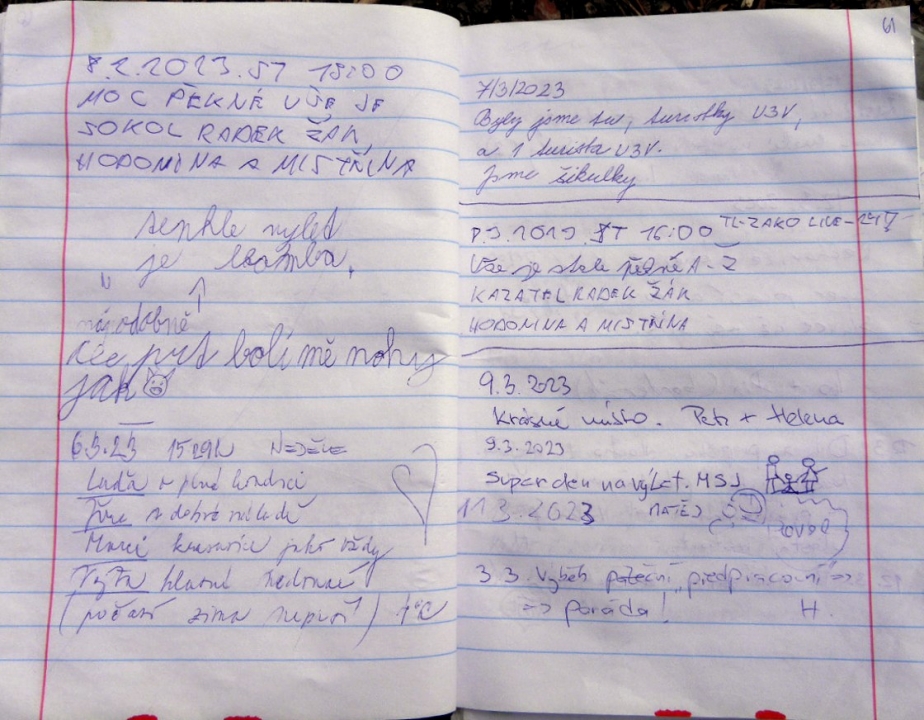 8.2.2023. ST 18:00
MOC PĚKNÉ VŠE JE
SOKOL RADEK ŽÁK
HODOMINA A MISTŘINA
tenhle výlet
je bomba,
bolí mě nohy
jak
6.3.23 15 NEDĚLE
Luďa v plné kondici
v dobré náladě
krasavice jako vždy
hlavně
(počasí zima neprší) 1°C
61
7/3/2023
Byly jsme tu, turistky U3V,
a 1 turista U3V.
Jsme šikulky
ST 16:00
Vše je stále pěkné A-Z
KAZATEL RADEK ŽÁK
HODOMINA A MISTŘINA
9.3.2023
Krásné místo. Petr + Helena
9.3.2023
Super den na výlet. MSJ
11.3.2023 MATĚJ
3.3. Výběh páteční "předpracovní" =>
=> paráda! H.